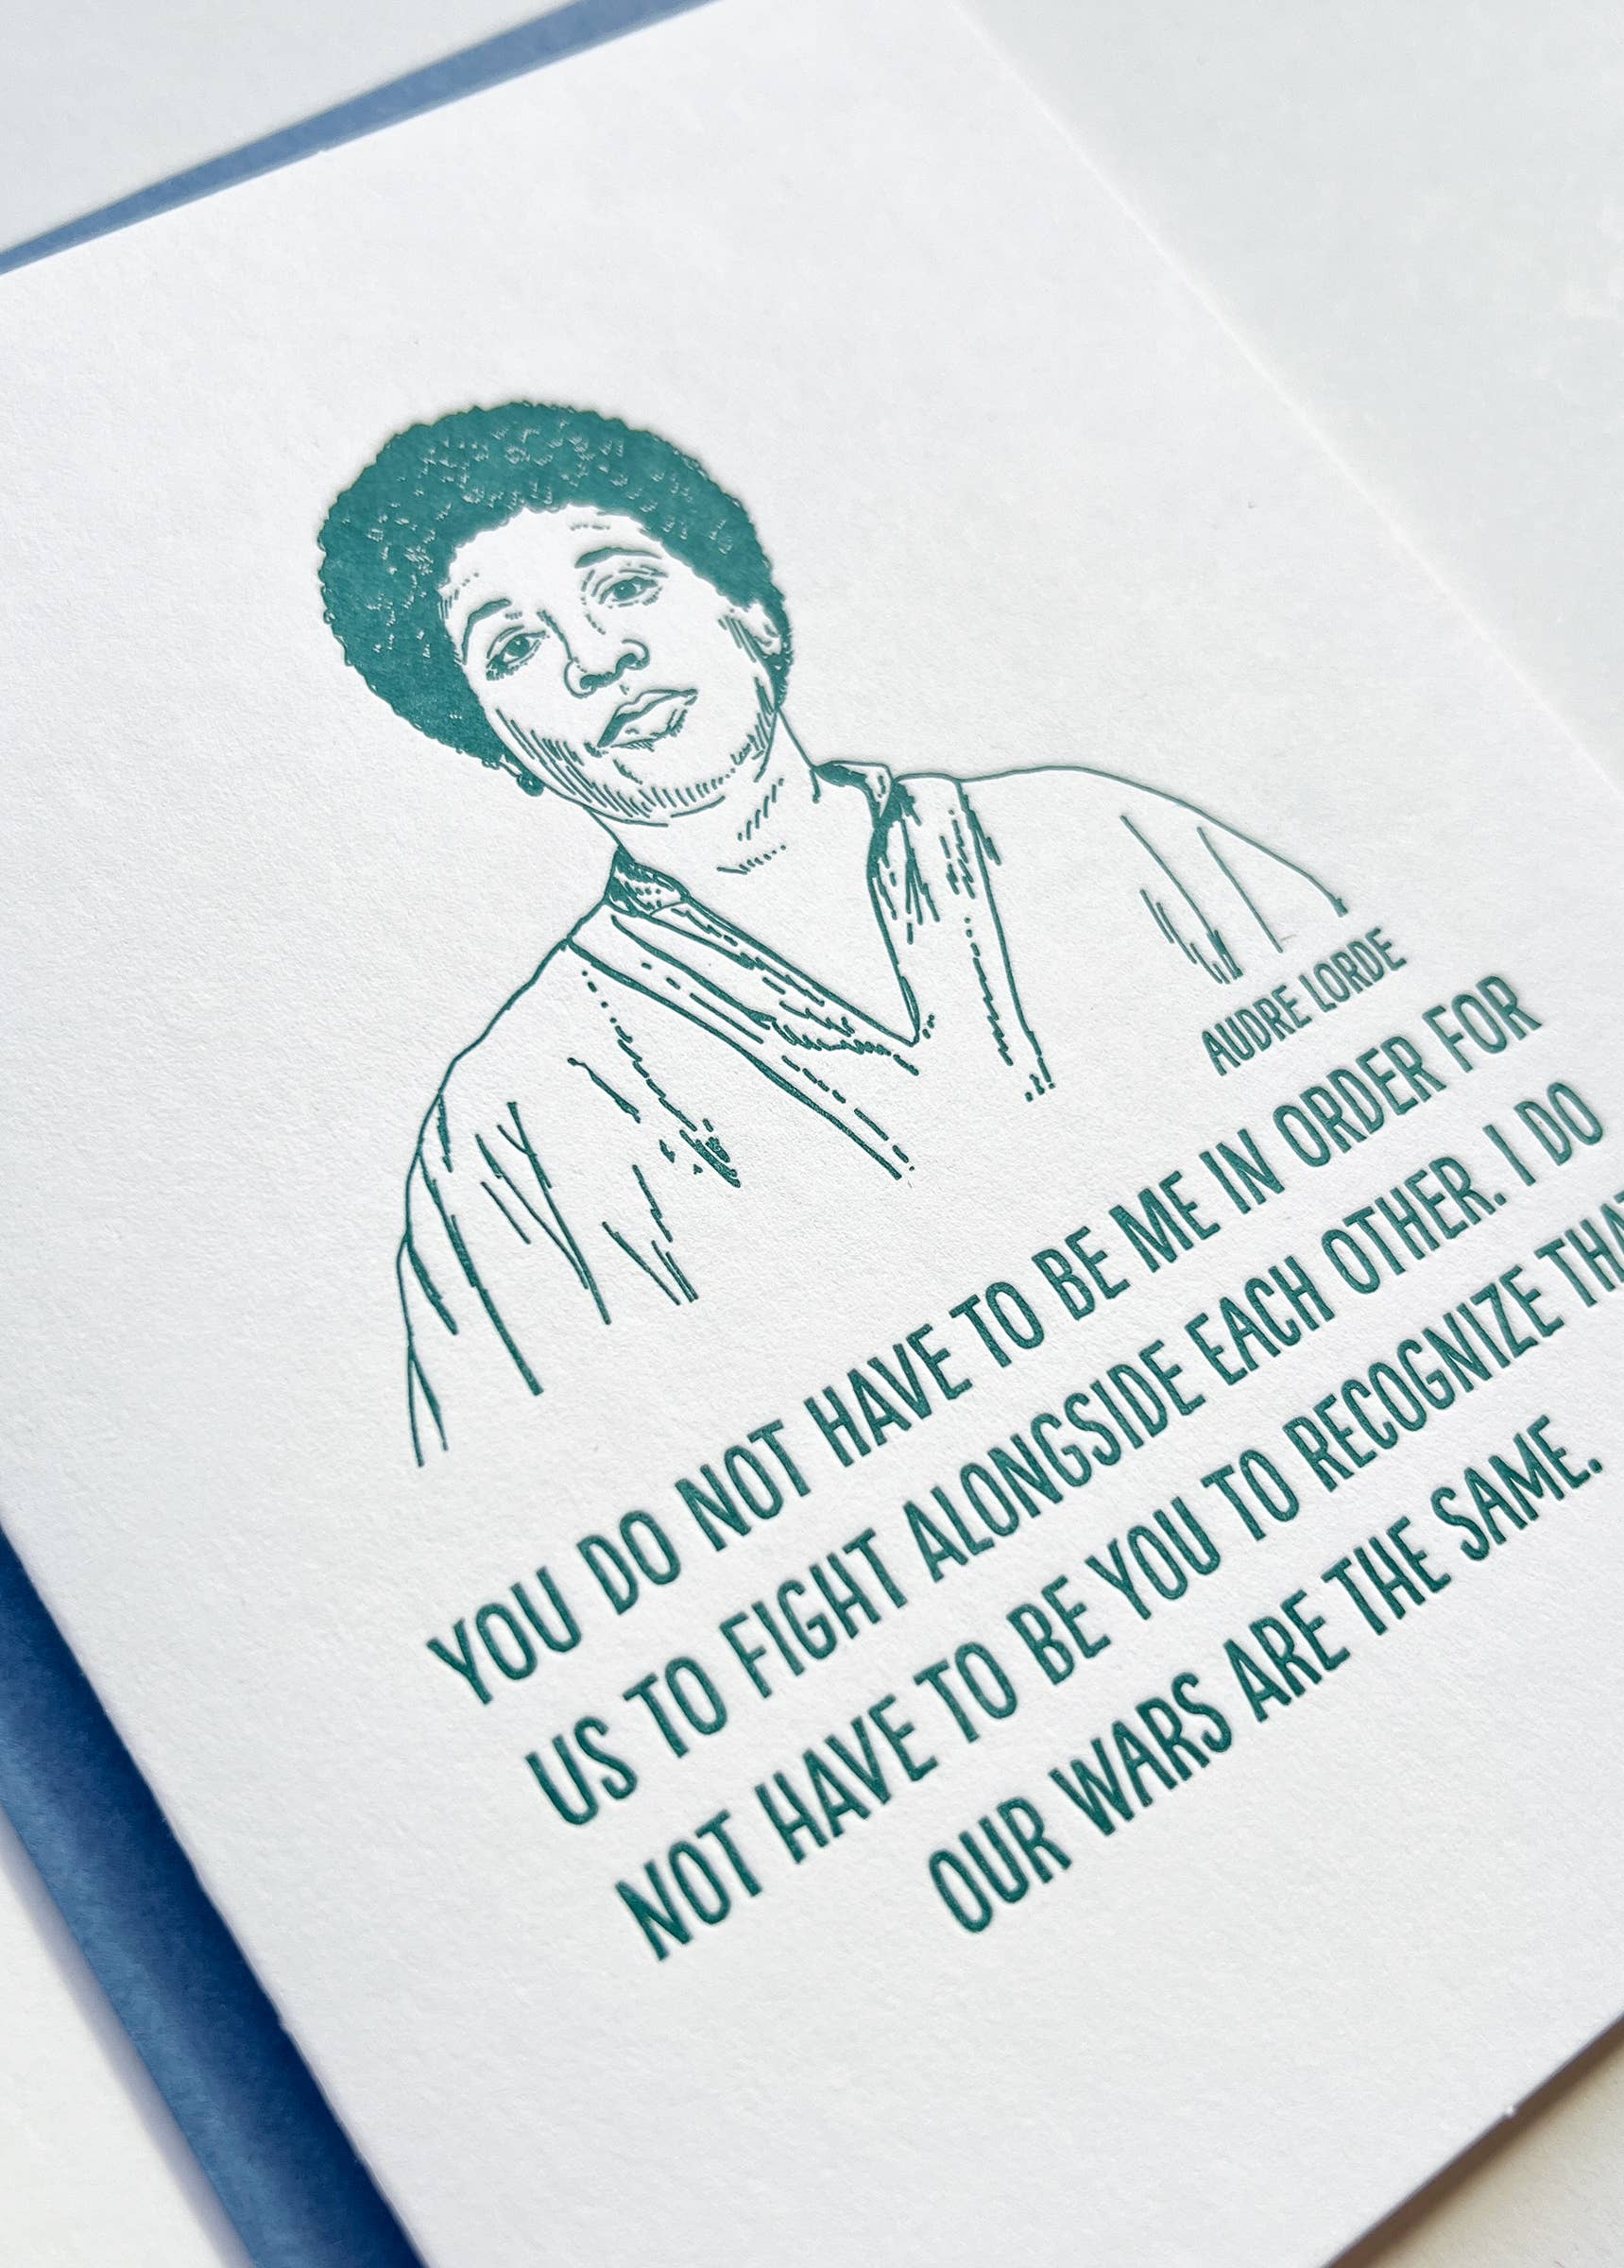 AUDRE LORDE
YOU DO NOT HAVE TO BE ME IN ORDER FOR
US TO FIGHT ALONGSIDE EACH OTHER. I DO
NOT HAVE TO BE YOU TO RECOGNIZE THAT
OUR WARS ARE THE SAME.